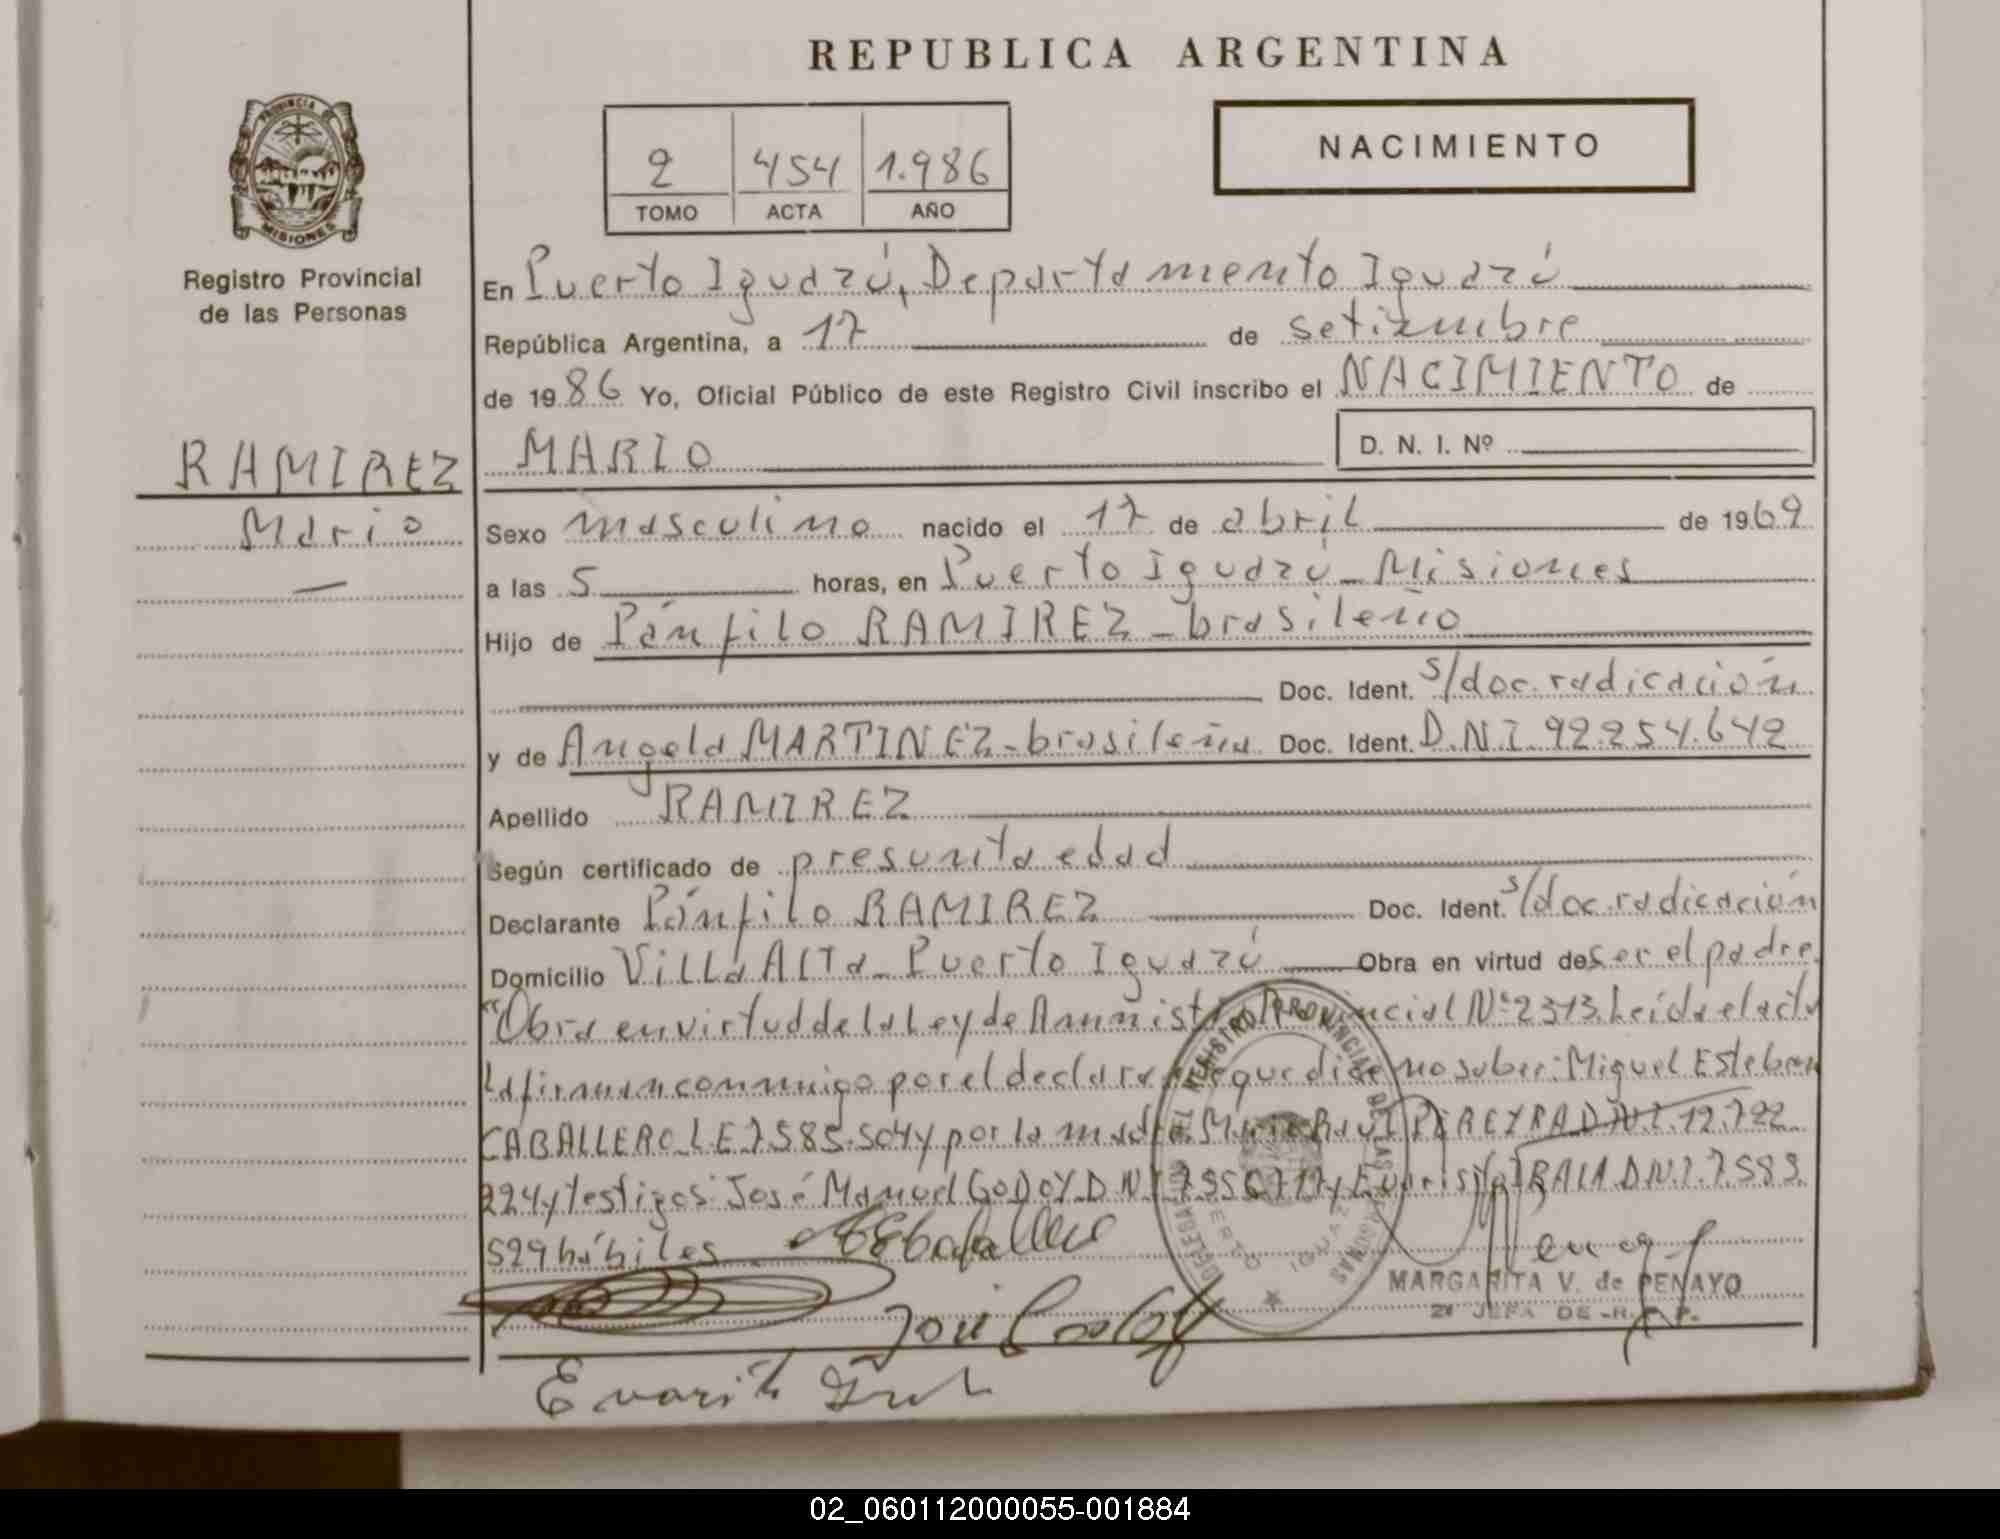 REPUBLICA ARGENTINA
PROVINCIA DE MISIONES
Registro Provincial
de las Personas
2 454 1.986
TOMO ACTA AÑO
NACIMIENTO
En Puerto Iguazú, Departamento Iguazú
República Argentina, a 17 de setiembre
de 1986 Yo, Oficial Público de este Registro Civil inscribo el NACIMIENTO de
RAMIREZ
Mario
MARIO D. N. I. Nº
Sexo masculino nacido el 17 de abril de 1969
a las 5 horas, en Puerto Iguazú - Misiones
Hijo de Pánfilo RAMIREZ - brasileño
Doc. Ident. s/doc. radicación
y de Angela MARTINEZ - brasileña Doc. Ident. D.N.I. 92.254.642
Apellido RAMIREZ
Según certificado de presunta edad
Declarante Pánfilo RAMIREZ Doc. Ident. s/doc. radicación
Domicilio Villa Alta - Puerto Iguazú Obra en virtud de ser el padre.
"Obra en virtud de la Ley de Amnistía Provincial Nº 2313. Leída el acta
La firman conmigo por el declarante que dice no saber: Miguel Esteban
CABALLERO L.E 7.585.504 y por la madre María PEREYRA D.N.I. 12.722
224 y testigos: José Manuel GODOY D.N.I. y Evaristo D.N.I. 7.589.
529 hábiles
DELEGADO DEL REGISTRO PROVINCIAL DE LAS PERSONAS
PUERTO IGUAZU
MARGARITA V. de PENAYO
2ª JEFA DE R. P. P.
02_060112000055-001884